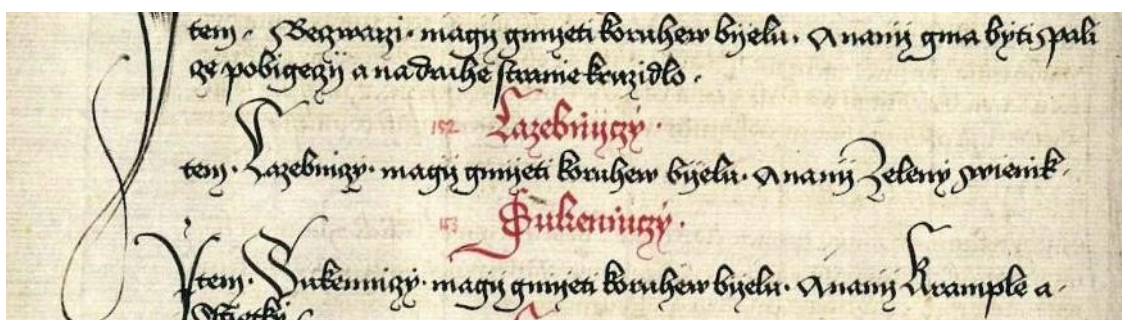 Item. Begwarzi. magij gmijeti koruhew bijelu. A nanij gma byti spali
cze pobigeczij a nadruhe stranie kruzidlo.
152 Lazebnijczy.
Item. Lazebniczy. magij gmijeti koruhew bijelu. A nanij Zeleny wienik.
153 Sukenniczy.
Item. Sukenniczy. magij gmijeti koruhew bijelu. A nanij Krample a.